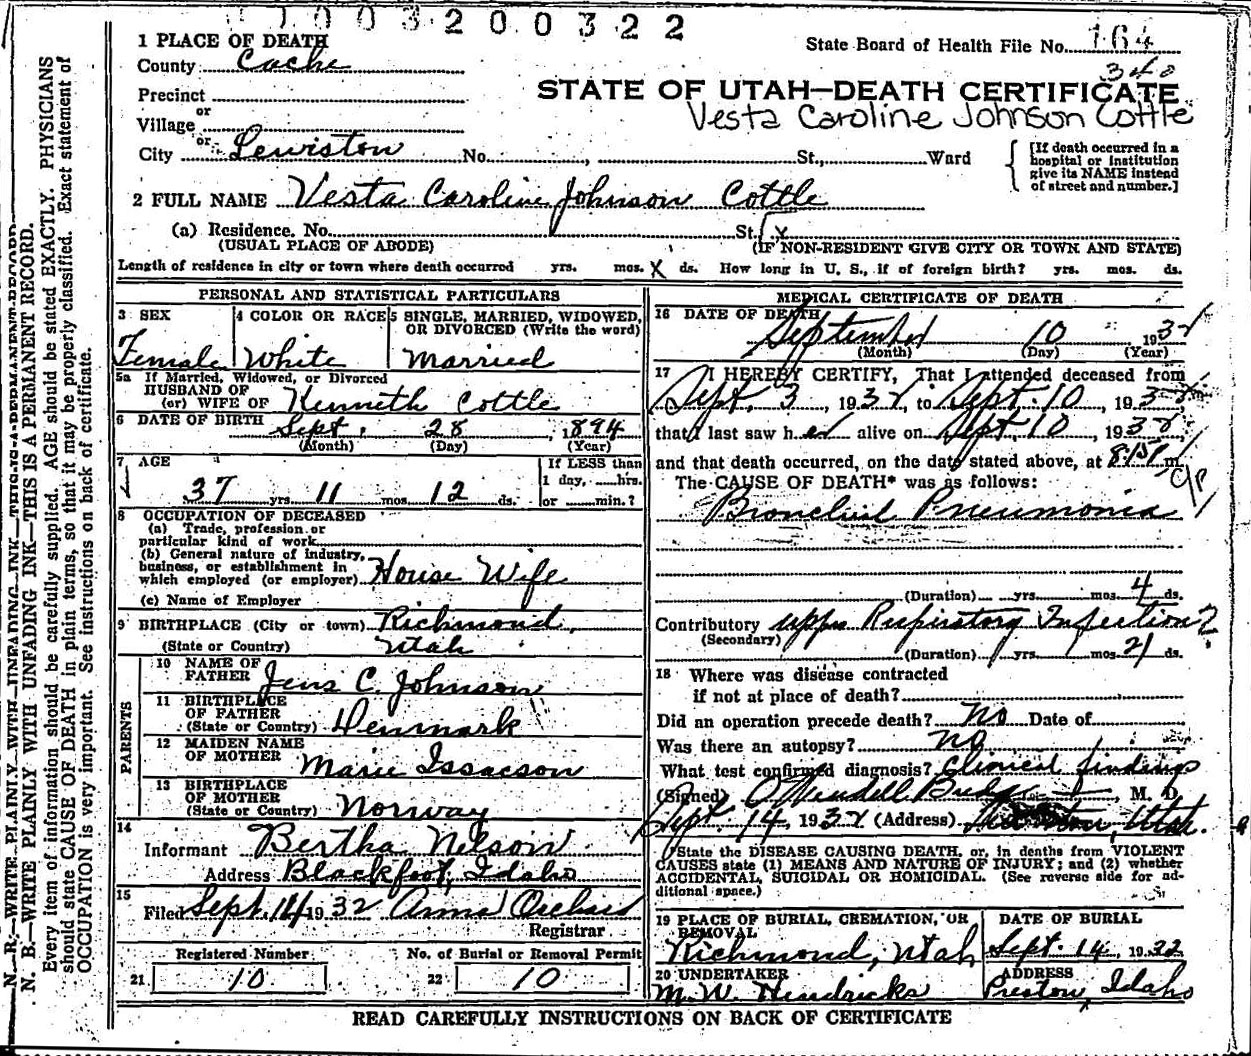 1003200322
1 PLACE OF DEATH
State Board of Health File No. 164
County Cache
340
Precinct
STATE OF UTAH—DEATH CERTIFICATE
or
Vesta Caroline Johnson Cottle
Village
or
City Lewiston No. , St., Ward
[If death occurred in a hospital or institution give its NAME instead of street and number.]
2 FULL NAME Vesta Caroline Johnson Cottle
(a) Residence. No. St. x
(USUAL PLACE OF ABODE) (IF NON-RESIDENT GIVE CITY OR TOWN AND STATE)
Length of residence in city or town where death occurred yrs. mos. X ds. How long in U. S., if of foreign birth? yrs. mos. ds.
PERSONAL AND STATISTICAL PARTICULARS
3 SEX 4 COLOR OR RACE 5 SINGLE, MARRIED, WIDOWED,
OR DIVORCED (Write the word)
Female White Married
5a If Married, Widowed, or Divorced
HUSBAND OF
(or) WIFE OF Kenneth Cottle
6 DATE OF BIRTH Sept. 28, 1894
(Month) (Day) (Year)
7 AGE
If LESS than
1 day, hrs.
37 yrs. 11 mos. 12 ds. or min.?
8 OCCUPATION OF DECEASED
(a) Trade, profession or
particular kind of work
(b) General nature of industry,
business, or establishment in
which employed (or employer) House Wife
(c) Name of Employer
9 BIRTHPLACE (City or town) Richmond,
(State or Country) Utah
PARENTS
10 NAME OF
FATHER Jens C. Johnson
11 BIRTHPLACE
OF FATHER
(State or Country) Denmark
12 MAIDEN NAME
OF MOTHER Marie Issacson
13 BIRTHPLACE
OF MOTHER
(State or Country) Norway
14
Informant Bertha Nelson
Address Blackfoot, Idaho
15
Filed Sept. 14 1932 Anna Orchard
Registrar
Registered Number No. of Burial or Removal Permit
21 10 22 10
MEDICAL CERTIFICATE OF DEATH
16 DATE OF DEATH
September 10, 1932
(Month) (Day) (Year)
17 I HEREBY CERTIFY, That I attended deceased from
Sept. 3, 1932, to Sept. 10, 1932
that I last saw her alive on Sept. 10, 1932
and that death occurred, on the date stated above, at 8:15P m.
The CAUSE OF DEATH* was as follows:
Bronchial Pneumonia
(Duration) yrs. mos. 4 ds.
Contributory Upper Respiratory Infection?
(Secondary)
(Duration) yrs. mos. 21 ds.
18 Where was disease contracted
if not at place of death?
Did an operation precede death? No Date of
Was there an autopsy? no
What test confirmed diagnosis? Clinical findings
(Signed) O Wendell Budge, M. D.
Sept. 14, 1932 (Address) Utah.
*State the DISEASE CAUSING DEATH, or, in deaths from VIOLENT
CAUSES state (1) MEANS AND NATURE OF INJURY; and (2) whether
ACCIDENTAL, SUICIDAL OR HOMICIDAL. (See reverse side for ad-
ditional space.)
19 PLACE OF BURIAL, CREMATION, OR
REMOVAL
Richmond, Utah
DATE OF BURIAL
Sept. 14, 1932
20 UNDERTAKER
M. W. Hendricks
ADDRESS
Preston, Idaho
READ CAREFULLY INSTRUCTIONS ON BACK OF CERTIFICATE
N. B.—WRITE PLAINLY WITH UNFADING INK—THIS IS A PERMANENT RECORD.
N. B.—WRITE PLAINLY WITH UNFADING INK—THIS IS A PERMANENT RECORD.
Every item of information should be carefully supplied. AGE should be stated EXACTLY. PHYSICIANS
should state CAUSE OF DEATH in plain terms, so that it may be properly classified. Exact statement of
OCCUPATION is very important. See instructions on back of certificate.